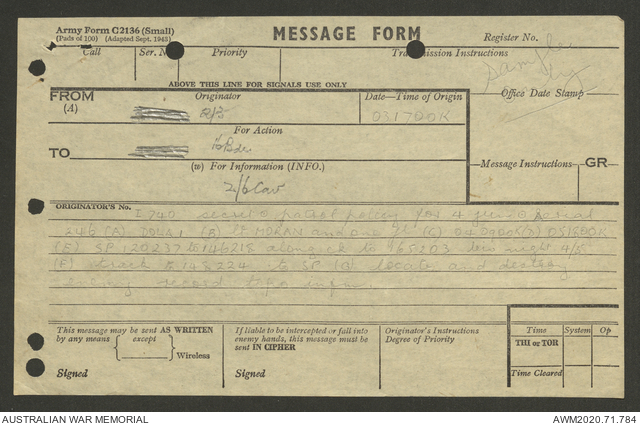 Army Form C2136 (Small)
(Pads of 100) (Adapted Sept. 1943)
MESSAGE FORM
Register No.
Call
Ser. No.
Priority
Transmission Instructions
Sample
ABOVE THIS LINE FOR SIGNALS USE ONLY
Office Date Stamp
FROM
(A)
Originator
2/5
Date—Time of Origin
031700K
For Action
TO
Bde
(w) For Information (INFO.)
2/6 Cav
Message Instructions
GR
ORIGINATOR'S No.
I 740 secret patrol policy for 4
246 (A) (B) Lt MORAN and one (C) 04 0900K (D) 051800K
(E) SP 120237 to 146218 along to night 4/5
(F) track to SP (G) locate and destroy
record
This message may be sent AS WRITTEN
by any means
except
Wireless
Signed
If liable to be intercepted or fall into
enemy hands, this message must be
sent IN CIPHER
Signed
Originator's Instructions
Degree of Priority
Time
System
Op
THI or TOR
Time Cleared
AUSTRALIAN WAR MEMORIAL
AWM2020.71.784